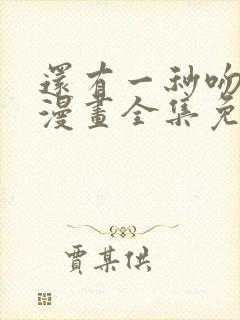 還有一秒吻
漫畫全集免
賈某供